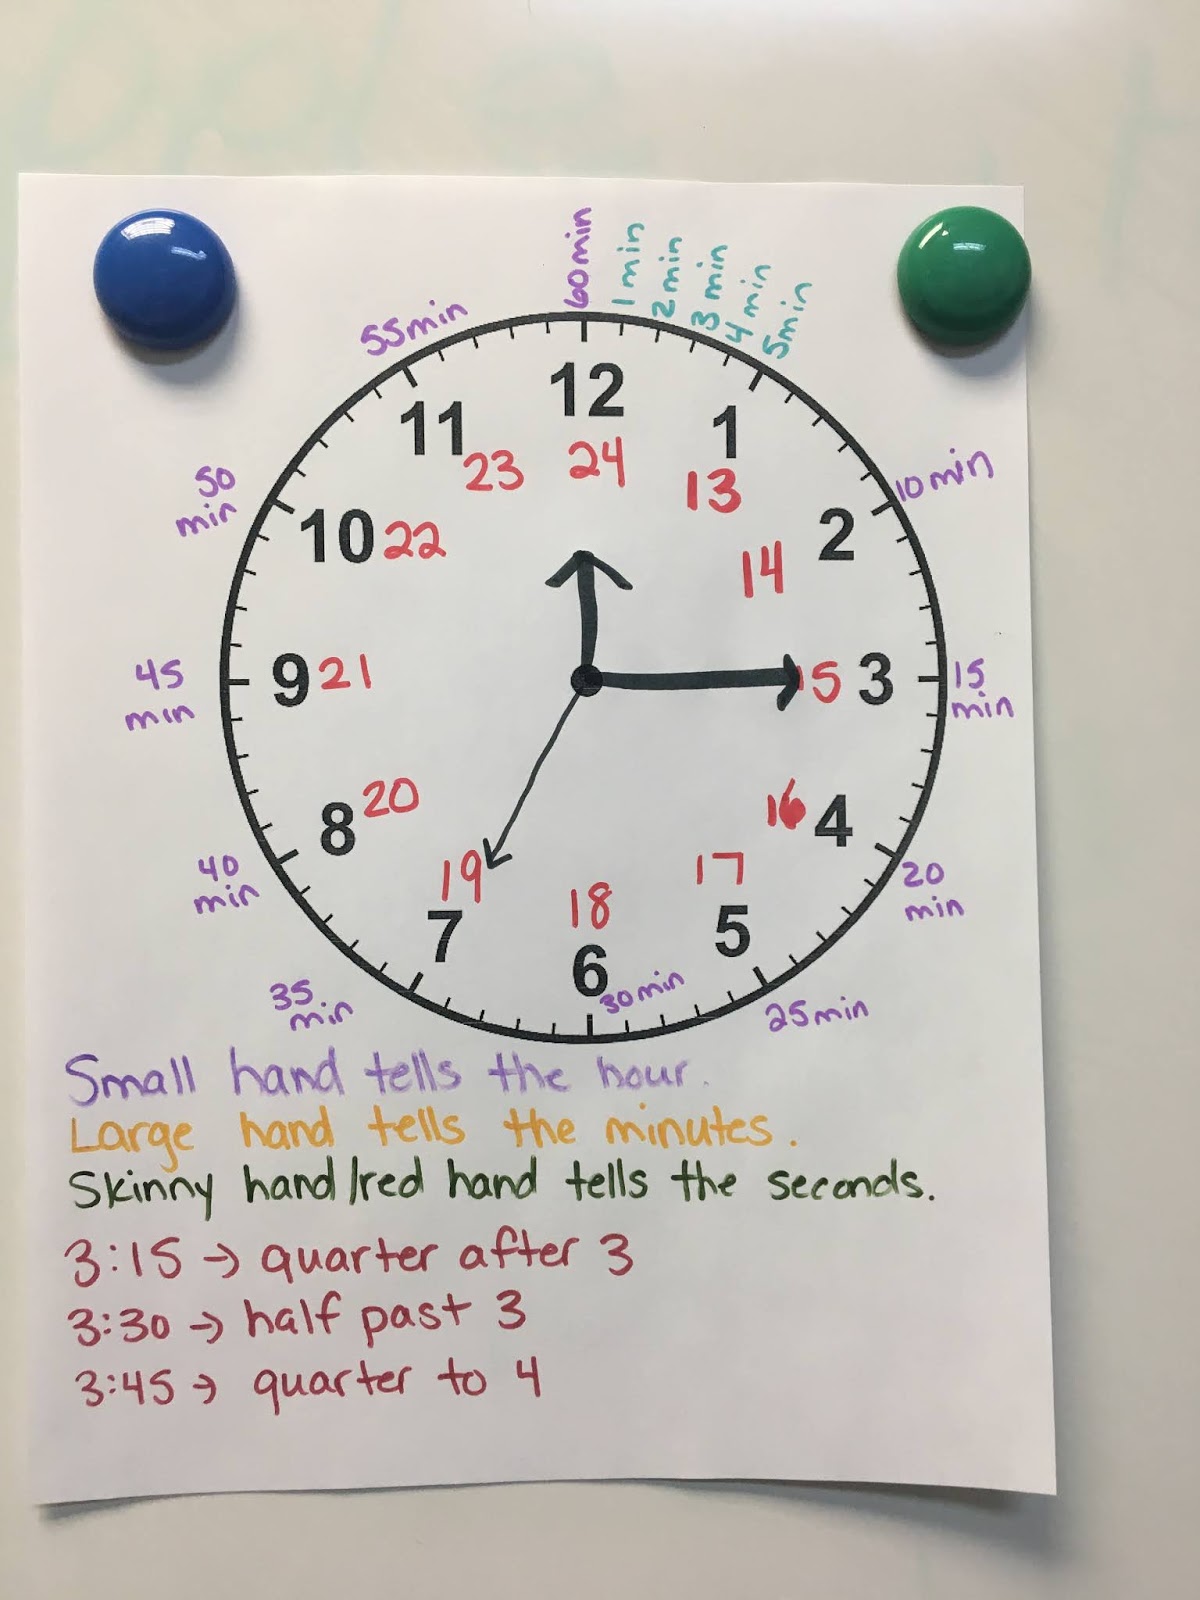 60min
1 min
2 min
3 min
4 min
5min
55min
12
11
1
23
24
13
50
min
10min
10
22
2
14
45
min
9
21
15
3
15
min
8
20
16
4
40
min
19
17
20
min
7
18
5
6
30min
35
min
25min
Small hand tells the hour.
Large hand tells the minutes.
Skinny hand/red hand tells the seconds.
3:15 → quarter after 3
3:30 → half past 3
3:45 → quarter to 4